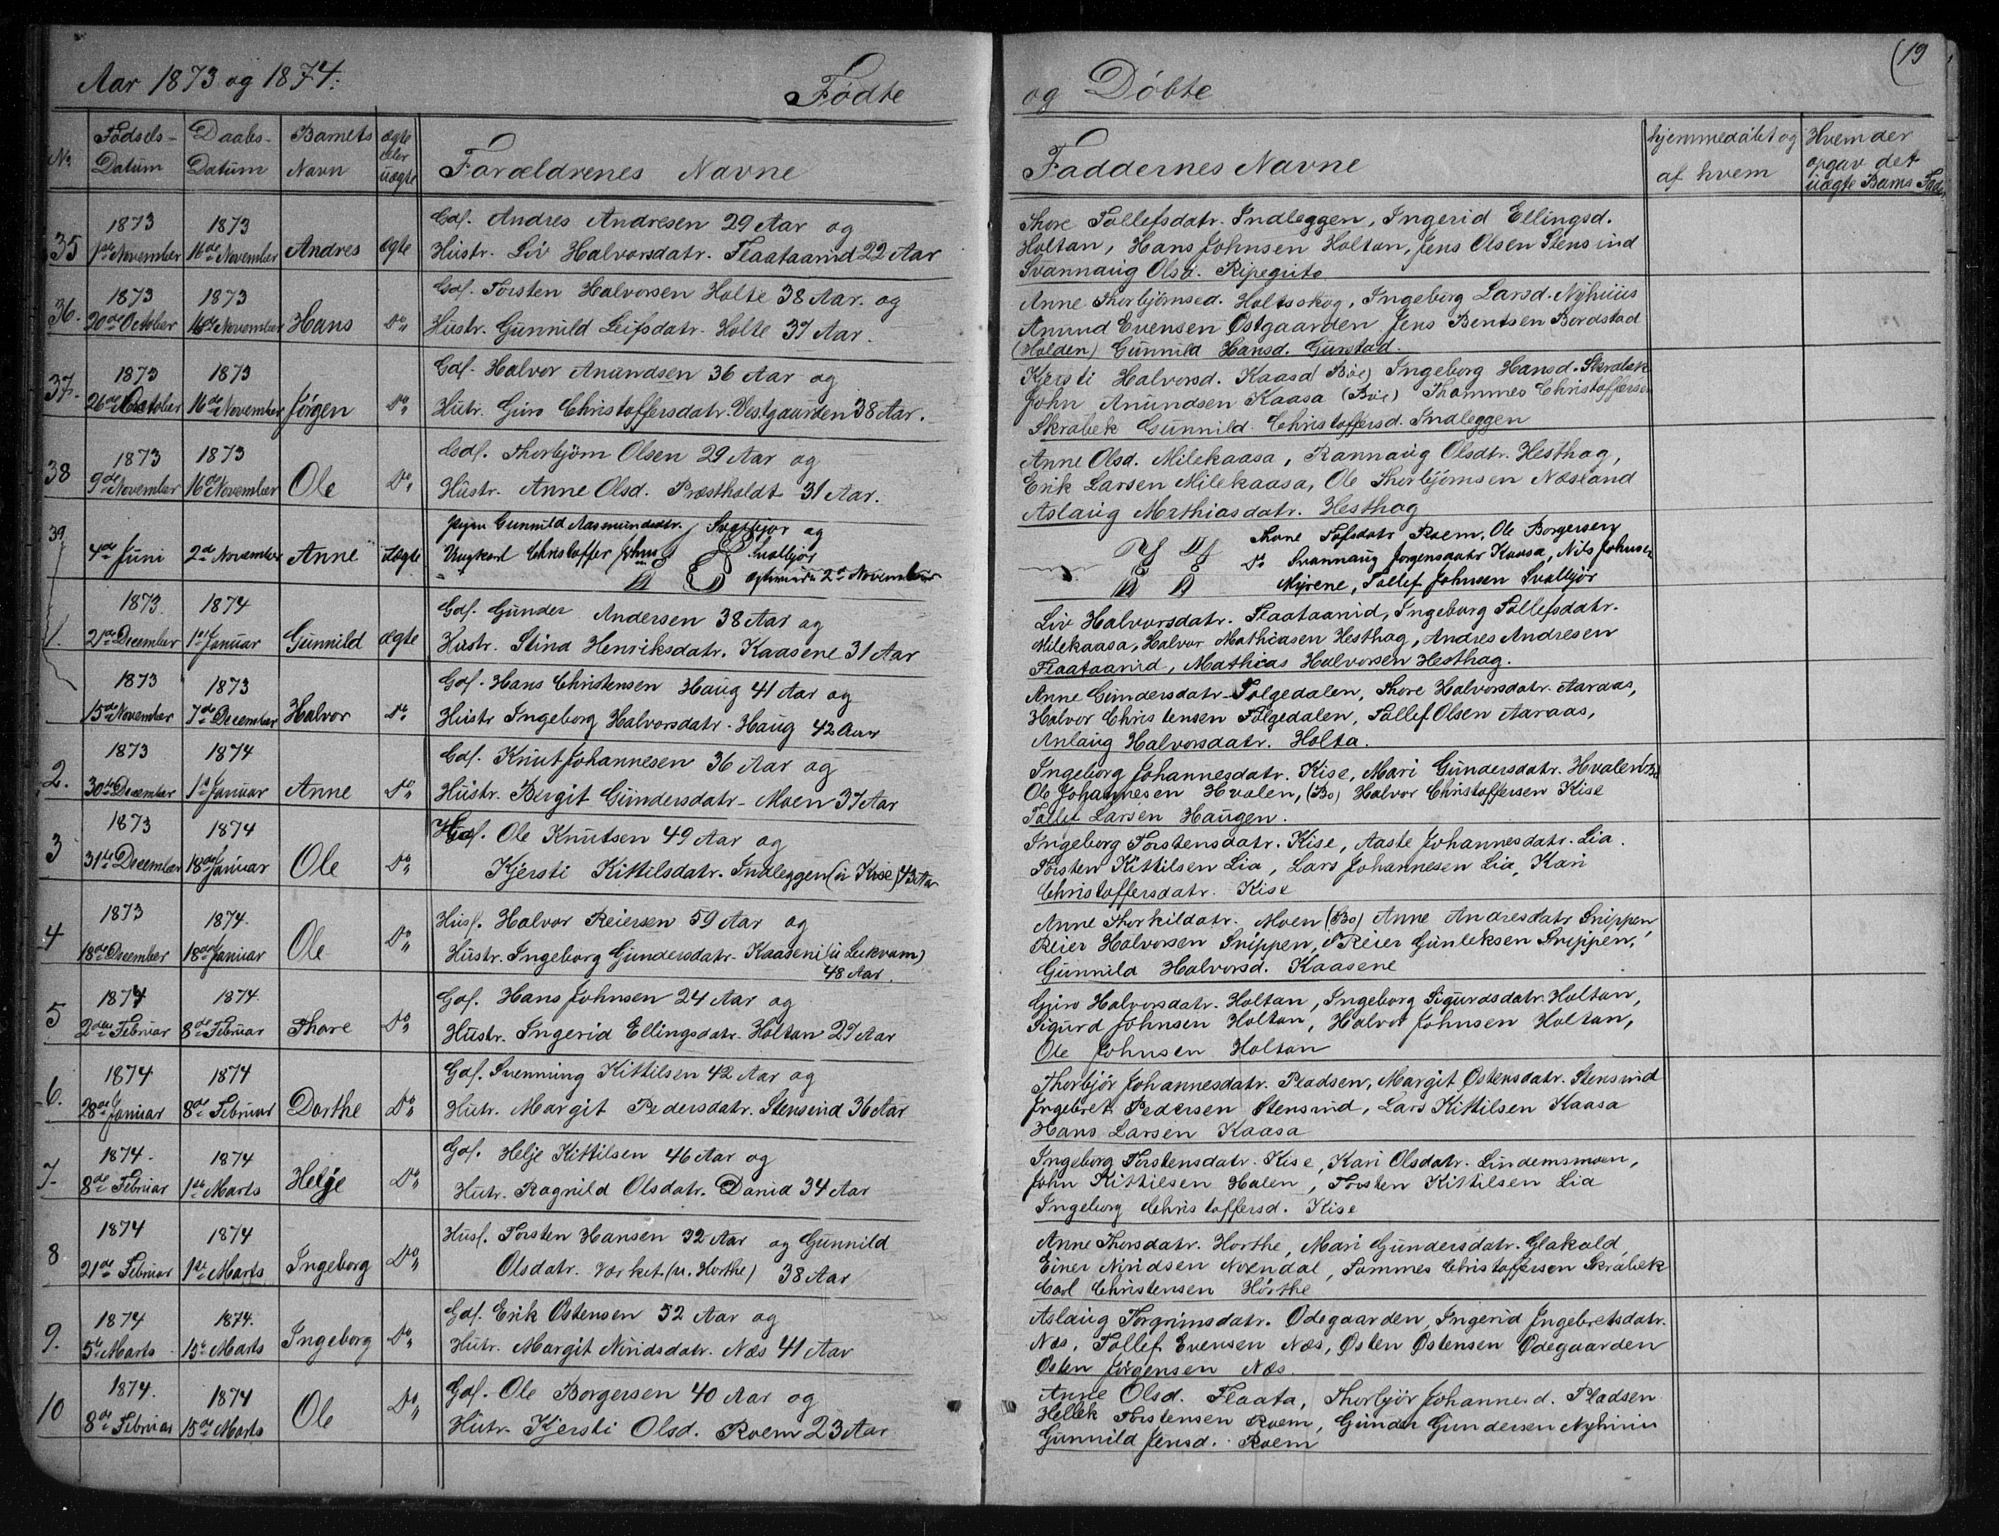 Aar 1873 og 1874.
Fødte
No
Fødsels-
Datum
Daabs-
Datum
Barnets
Navn
ægte
eller
uægte
Forældrenes Navne
35
1873
1ste November
1873
16de November
Andres
ægte
Gdf. Andres Andresen 29 Aar og
Hustr. Liv Halvorsdatr. Flaataanid 22 Aar
36.
1873
20de October
1873
16de November
Hans
Do
Gdf. Torsten Halvorsen Holte 38 Aar og
Hustr. Gunnild Leifsdatr. Holte 37 Aar.
37.
1873
26de October
1873
16de November
Jørgen
Do
Gdf. Halvor Anundsen 36 Aar og
Hutr. Guro Christoffersdatr. Vestgaarden 38 Aar.
38
1873
9de November
1873
16de November
Ole
Do
Gdf. Thorbjørn Olsen 29 Aar og
Hustr. Anne Olsd. Præstholdt 31 Aar.
39
4de Juni
2de November
Anne
uægte
Pigen Gunnild Aasmundsdtr. Svalbjør og
Ungkarl Christoffer Johns Svalbjør
2de November
1.
1873
21de December
1874
1st Januar
Gunnild
ægte
Gdf. Gunder Andersen 38 Aar og
Hustr. Stina Henriksdatr. Kaasene 31 Aar
1873
15de November
1873
7de December
Halvor
Do
Gdf. Hans Christensen Haug 41 Aar og
Hustr Ingeborg Halvorsdatr. Haug 42 Aar
2.
1873
30te December
1874
1st Januar
Anne
Do
Gdf. Knut Johannesen 36 Aar og
Hustr. Birgit Gundersdatr. Moen 37 Aar
3
1873
31te December
1874
18de Januar
Ole
Do
Gdf. Ole Knutsen 49 Aar og
Kjersti Kittilsdatr. Indleggen (u Kise) 43 Aar
4
1873
18de December
1874.
18de Januar
Ole
Do
Husf. Halvor Reiersen 59 Aar og
Hustr. Ingeborg Gundersdatr. Kaaseni (u Lekvam)
48 Aar.
5
1874
2den Februar
1874.
8de Februar
Thore
Do
Gdf. Hans Johnsen 24 Aar og
Hustr. Ingerid Ellingsdatr. Holtan 27 Aar
6.
1874
28de Januar
1874
8de Februar
Dorthe
Do
Gdf. Svenning Kittilsen 42 Aar og
Hutr. Margit Pedersdatr. Stensrud 36 Aar
7.
1874.
8de Februar
1874
1ste Marts
Helje
Do
Gdf. Helje Kittilsen 46 Aar og
Hutr. Ragnild Olsdatr. Danid 34 Aar
8
1874
21de Februar
1874
1ste Marts
Ingeborg
Do
Husf. Torsten Hansen 32 Aar og Gunnild
Olsdatr. Værket (u. Horthe) 38 Aar
9.
1874
5te Marts
1874.
15de Marts
Ingeborg
Do
Gdf. Erik Østensen 52 Aar og
Hutr. Margit Niridsdatr. Næs 41 Aar
10
1874.
8de Februar
1874
15de Marts
Ole
Do
Gdf. Ole Borgersen 40 Aar og
Hutr. Kjersti Olsd. Roem 23 Aar
(19
og Døbte
Faddernes Navne
hjemmedøbt og
af hvem
Hvem der
opgav det
uægte Barns Fader
Thore Tollefsdatr. Indleggen, Ingerid Ellingsd.
Holtan, Hans Johnsen Holtan, Jens Olsen Stensrud
Svannaug Olsd. Ripeguto
Anne Thorbjørnsd. Holtsskog, Ingeborg Larsd. Nyhuus
Anund Evensen Østgaarden Jens Bentsen Bordstad
(Holden) Gunnild Hansd. Gurstad.
Kjersti Halvorsd. Kaasa (Bøe) Ingeborg Hansd. Skrabæk
John Anundsen Kaasa (Bøe) Thommes Christoffersen
Skrabek Gunnild Christoffersd. Indleggen
Anne Olsd. Milekaasa, Rannaug Olsdtr. Hesthag,
Erik Larsen Milekaasa, Ole Thorbjørnsen Næsland
Aslaug Mathiasdatr. Hesthag
Thone Tofsdatr Roem, Ole Borgersen
Do Svannaug Jorgensdatr Kaasa, Nils Johnsen
Myrene, Tollef Johnsen Svalbjør
Liv Halvorsdatr. Flaataanid, Ingeborg Tollefsdatr.
Milekaasa, Halvor Mathiasen Hesthag, Andres Andresen
Flaataanid, Mathias Halvorsen Hesthag.
Anne Gundersdatr. Folgedalen, Thore Halvorsdatr. Aaraas,
Halvor Christensen Folgedalen, Tollef Olsen Aaraas,
Anlaug Halvorsdatr. Holta.
Ingeborg Johannesdatr. Kise, Mari Gundersdatr. Hvalen (Bø)
Ole Johannesen Hvalen, (Bø) Halvor Christoffersen Kise
Tollef Larsen Haugen.
Ingeborg Torstensdatr. Kise, Aaste Johannesdatr. Lia.
Torsten Kittilsen Lia, Lars Johannesen Lia, Kari
Christoffersdatr. Kise
Anne Thorkildatr. Moen (Bø) Anne Andresdatr Snippen,
Reier Halvorsen Snippen, Reier Gunleksen Snippen,
Gunnild Halvorsd. Kaasene
Guro Halvorsdatr. Holtan, Ingeborg Sigurdsdatr. Holtan,
Sigurd Johnsen Holtan, Halvor Johnsen Holtan,
Ole Johnsen Holtan
Thorbjør Johannesdatr. Pladsen, Margit Østensdatr. Stensrud
Ingebret Pedersen Stensrud, Lars Kittilsen Kaasa
Hans Larsen Kaasa
Ingeborg Torstensdatr. Kise, Kari Olsdatr. Lindemsmoen,
John Kittilsen Halen, Torsten Kittilsen Lia
Ingeborg Christoffersd. Kise
Anne Thorsdatr. Horthe, Mari Gundersdatr. Glakald,
Einer Niridsen Noendal, Tommes Christoffersen Skrabæk
Carl Christensen Hørthe
Aslaug Torgrimsdatr. Ødegaarden, Ingerid Ingebretsdatr.
Næs. Tollef Evensen Næs, Østen Østensen Ødegaarden
Østen Jørgensen Næs.
Anne Olsd. Flaata, Thorbjør Johannesd. Pladsen
Hellek Torstensen Roem, Gunder Gundersen Nyhuus
Gunnild Jensd. Roem